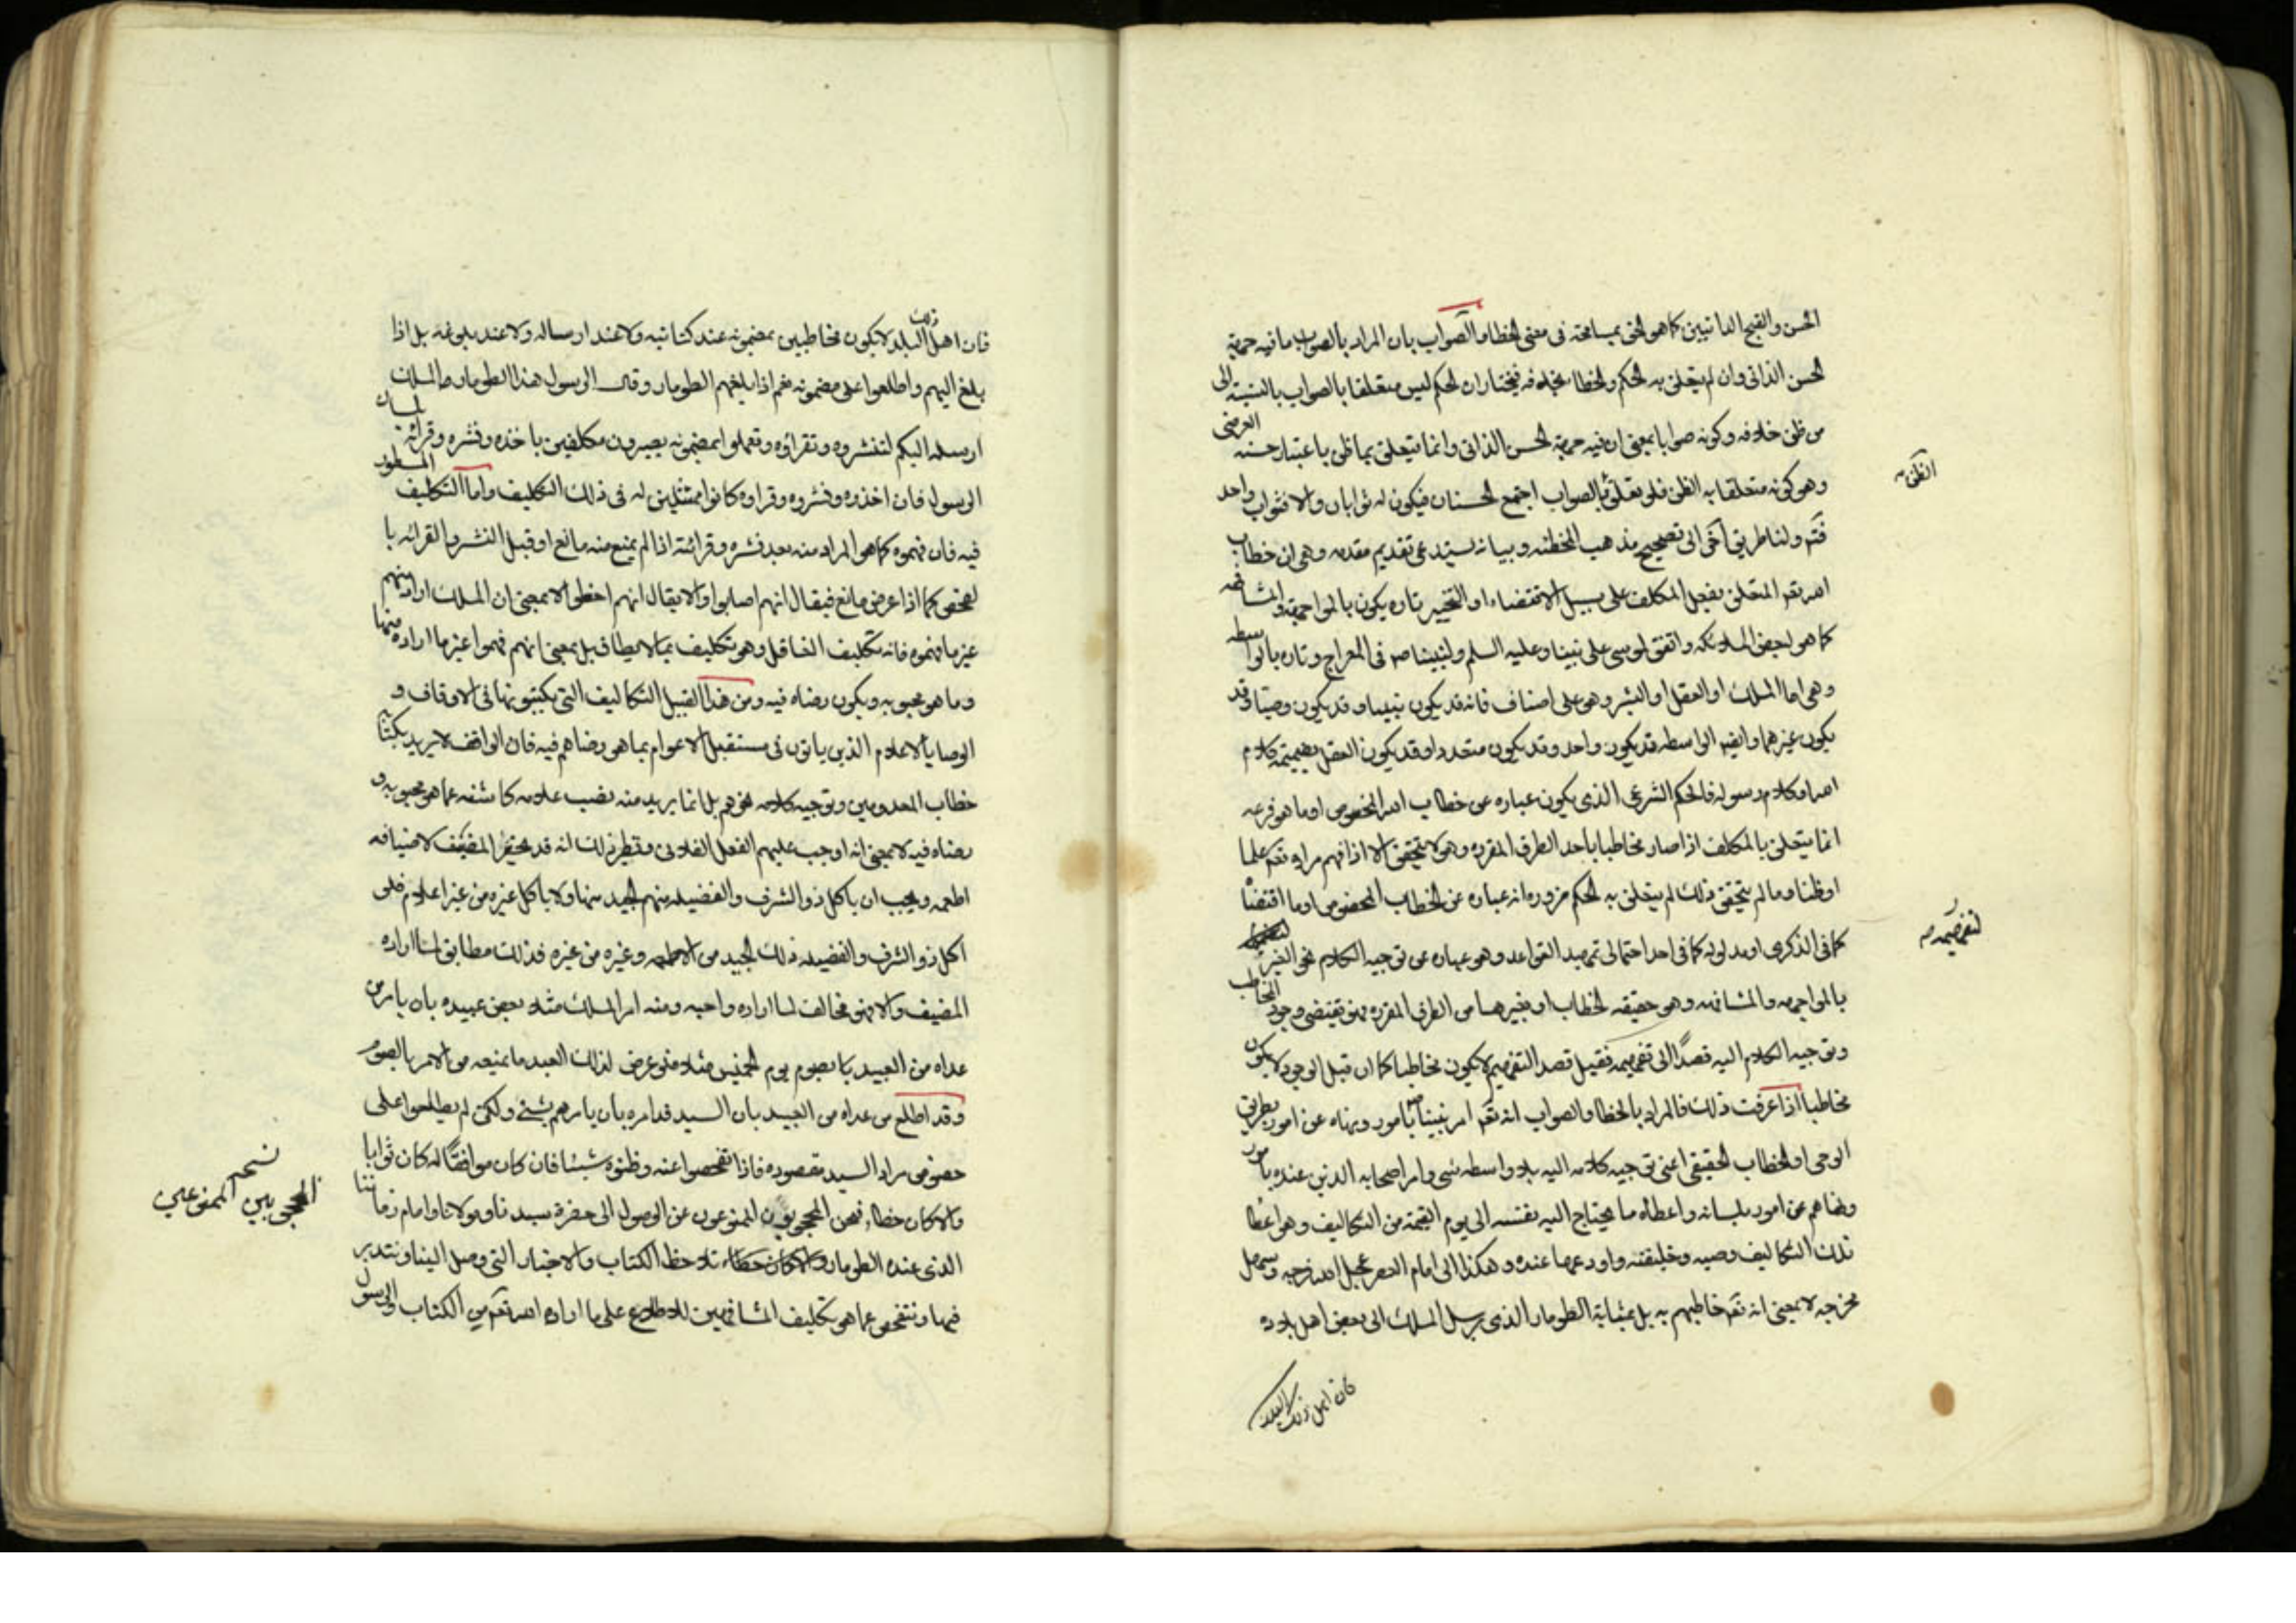 الحسن والقبح الذاتيين كما هو الحق بمسامحة فى معنى الخطا والصواب بان المراد بالصواب ما فيه جهة
الحسن الذاتى وان لم يتعلق به الحكم والخطا بخلافه فيختار ان الحكم ليس متعلقا بالصواب بالنسبة الى
من ظن خلافه وكونه صوابا بمعنى ان فيه جهة الحسن الذاتى وانما يتعلق بما ظن باعتبار حسنه العرضى
وهو كونه متعلقا به الظن فلو تعلق بالصواب اجتمع الحسنان فيكون له ثوابان والا فثواب واحد
الظن به
ولنا طريق آخر الى تصحيح مذهب المخطئه وبيانه يستدعى تقديم مقدمه وهى ان خطاب
الله تعم المتعلق بفعل المكلف على سبيل الاقتضاء او التخيير تاره يكون بالمواجهة والمشافهه
كما هو لبعض الملائكه واتفق لموسى على نبينا وعليه السلم ولنبينا ص فى المعراج وتاره بالواسطه
وهى اما الملك او العقل او البشر وهو على اصناف فانه قد يكون نبيا وقد يكون وصيا وقد
يكون غيرهما وايضا الواسطه قد يكون واحد وقد يكون متعددا وقد يكون العقل بضميمة كلام
الله او كلام رسوله فالحكم الشرعى الذى يكون عباره عن خطاب الله المخصوص او ما هو فرعه
انما يتعلق بالمكلف اذا صار مخاطبا باحد الطرق المقرره وهو لا يتحقق الا اذا فهم مراده تعم علما
او ظنا وما لم يتحقق ذلك لم يتعلق به الحكم ضروره انه عباره عن الخطاب المخصوص او ما اقتضاه
كما فى الذكرى او مدلوله كما فى احد احتمالى تمهيد القواعد وهو عباره عن توجيه الكلام نحو الغير
لتفهيمه ص
بالمواجهه والمشافهه وهو حقيقه الخطاب او بغيرهما من الطرق المقرره فهو يقتضى وجود المخاطب
وتوجيه الكلام اليه قصدا الى تفهيمه فقبل قصد التفهيم لا يكون مخاطبا كما ان قبل الوجود لا يكون
مخاطبا اذا عرفت ذلك فالمراد بالخطا والصواب انه تعم امر نبينا ص بامور ونهاه عن امور بطريق
الوحى او الخطاب الحقيقى اعنى توجيه كلامه اليه بلا واسطه شى وامر اصحابه الذين عنده بامور
ونهاهم عن امور بلسانه واعطاه ما يحتاج اليه نفسه الى يوم القيمة من التكاليف وهو اعطا
تلك التكاليف وصيه وخليفته واودعها عنده وهكذا الى امام العصر عجل الله فرجه وسهل
مخرجه لا بمعنى انه تعم خاطبهم به بل بمثابة الطومار الذى يرسل الملك الى بعض اهل بلاده
فان اهل ذلك البلد
فان اهل ذلك البلد لا يكون مخاطبين بمضمونه عند كتابته ولا عند ارساله ولا عند بلوغه بل اذا
بلغ اليهم واطلعوا على مضمونه نعم اذا بلغهم الطومار وقال الرسول هذا الطومار من الملك
ارسله اليكم لتنشروه وتقراؤه وتعملوا بمضمونه يصيرون مكلفين باخذه ونشره وقرائته بلسان
الرسول فان اخذوه ونشروه وقراوه كانوا ممتثلين له فى ذلك التكليف واما التكليف المسطور
فيه فان فهموه كما هو المراد منه بعد نشره وقرائته اذا لم يمنع منه مانع او قبل النشر والقرائه با
لفحص كما اذا عرض مانع فيقال انهم اصابوا والا يقال انهم اخطؤا لا بمعنى ان الملك اراد منهم
غير ما فهموه فانه تكليف الغافل وهو تكليف بما لا يطاق بل بمعنى انهم فهموا غير ما اراده منها
وما هو محبوبه ويكون رضاه فيه ومن هذا القبيل التكاليف التى يكتبونها فى الاوقاف و
الوصايا لاعلام الذين ياتون فى مستقبل الاعوام بما هو رضاهم فيه فان الواقف لا يريد بكتابه
خطاب المعدومين وتوجيه كلامه نحوهم بل انما يريد منه نصب علامه كاشفه عما هو محبوبه و
رضاه فيه لا بمعنى انه اوجب عليهم الفعل الفلانى ونظير ذلك انه قد يحضر المضيف لاضيافه
اطعمه ويحب ان ياكل ذو الشرف والفضيله منهم الجيد منها ولا ياكل غيره من غير اعلام فلو
اكل ذو الشرف والفضيله ذلك الجيد من الاطعمه وغيره من غيره فذلك مطابق لما اراده
المضيف والا فهو مخالف لما اراده واحبه ومنه امر الملك مثلا بعض عبيده بان يامر من
عداه من العبيد بان يصوم يوم الخميس مثلا فلو عرض لذلك العبد ما يمنعه من الامر بالصوم
وقد اطلع من عداه من العبيد بان السيد قد امره بان يامرهم بشئ ولكن لم يطلعوا على
خصوص مراد السيد ومقصوده فاذا تفحصوا عنه وظنوه شيئا فان كان موافقا له كان ثوابا
والا كان خطاء فنحن المحجوبون الممنوعون عن الوصول الى حضرة سيدنا ومولانا وامام زماننا
المحجوبين الممنوعين نسخه
الذى عنده الطومار والا كان خطاء نلاحظ الكتاب والاخبار التى وصل الينا ونتدبر
فيها ونتفحص عما هو تكليف المشافهين للاطلاع على ما اراده الله تعم من الكتاب والرسول